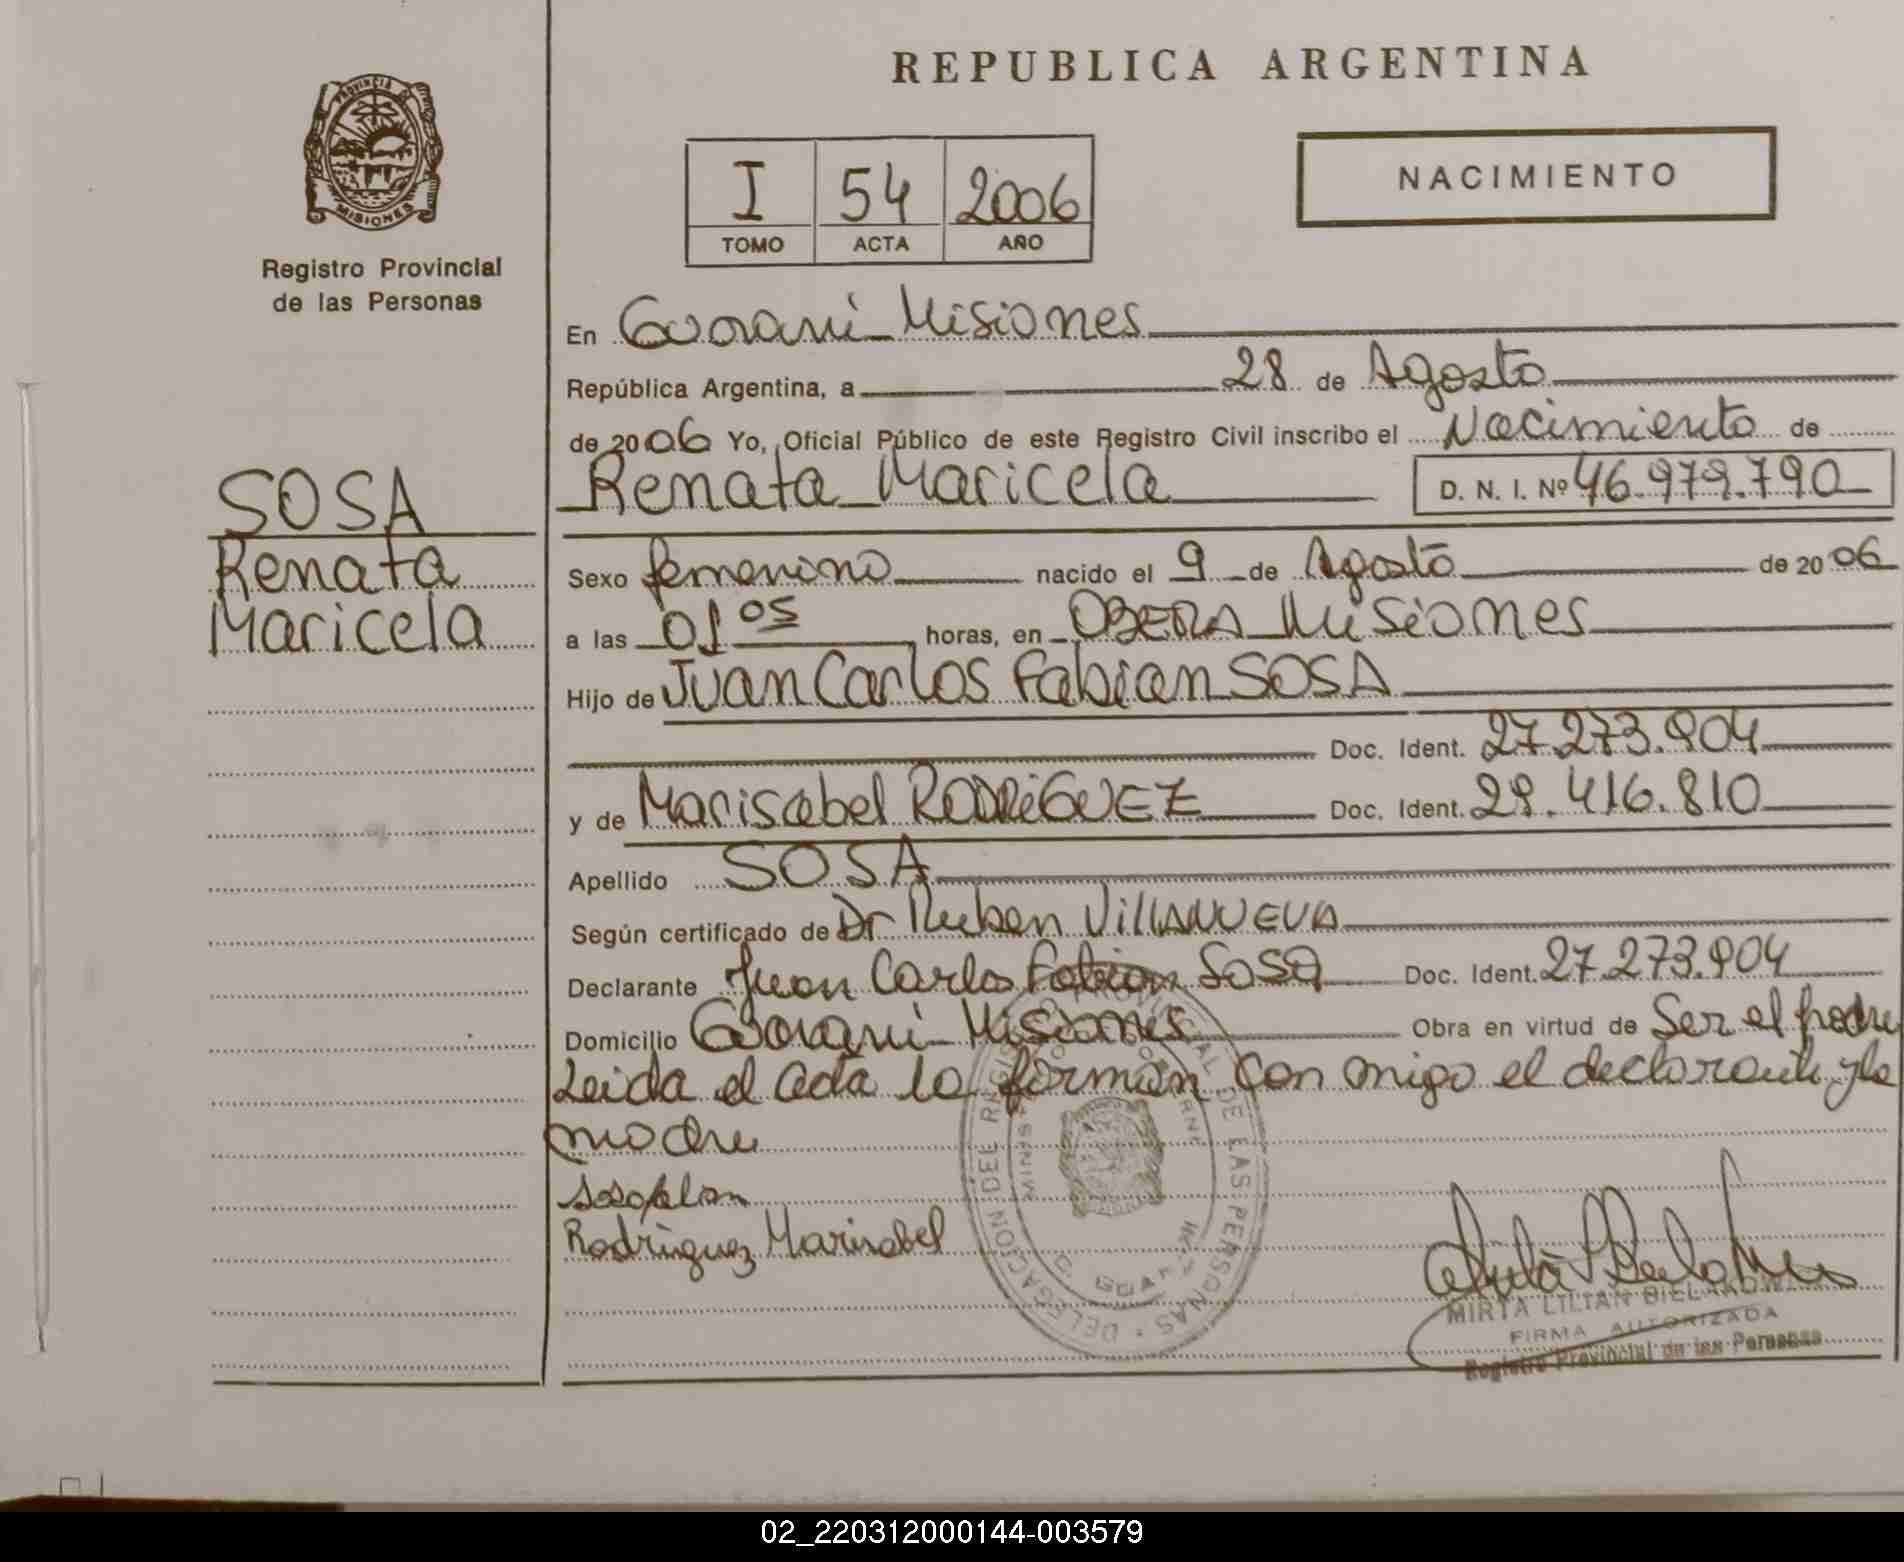 PROVINCIA DE
MISIONES
Registro Provincial
de las Personas
SOSA
Renata
Maricela
REPUBLICA ARGENTINA
I 54 2006
TOMO ACTA AÑO
NACIMIENTO
En Guarani Misiones
República Argentina, a 28 de Agosto
de 2006 Yo, Oficial Público de este Registro Civil inscribo el Nacimiento de
Renata Maricela D. N. I. Nº 46.979.790
Sexo femenino nacido el 9 de Agosto de 2006
a las 01 05 horas, en OBERA Misiones
Hijo de Juan Carlos Fabian SOSA
Doc. Ident. 27.273.904
y de Marisabel RODRIGUEZ Doc. Ident. 29.416.810
Apellido SOSA
Según certificado de Dr Ruben VILLANUEVA
Declarante Juan Carlos Fabian Sosa Doc. Ident. 27.273.904
Domicilio Guarani Misiones Obra en virtud de Ser el padre
Leida el acta la forman con migo el declarante y la
madre
Rodriguez Marisabel
DELEGACION DEL DE LAS PERSONAS
MIRTA LILIAN
FIRMA AUTORIZADA
Registro Provincial de las Personas
02_220312000144-003579